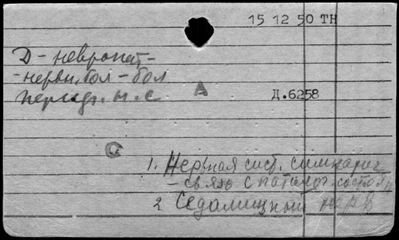 15 12 50 ТН
Д - невропат-
- нервн. бол - бол
перед. н. с
А
Д.6258
С
1. Нервная сист. симпатич
- связь с патолог. состоян
2 Седалищный нерв